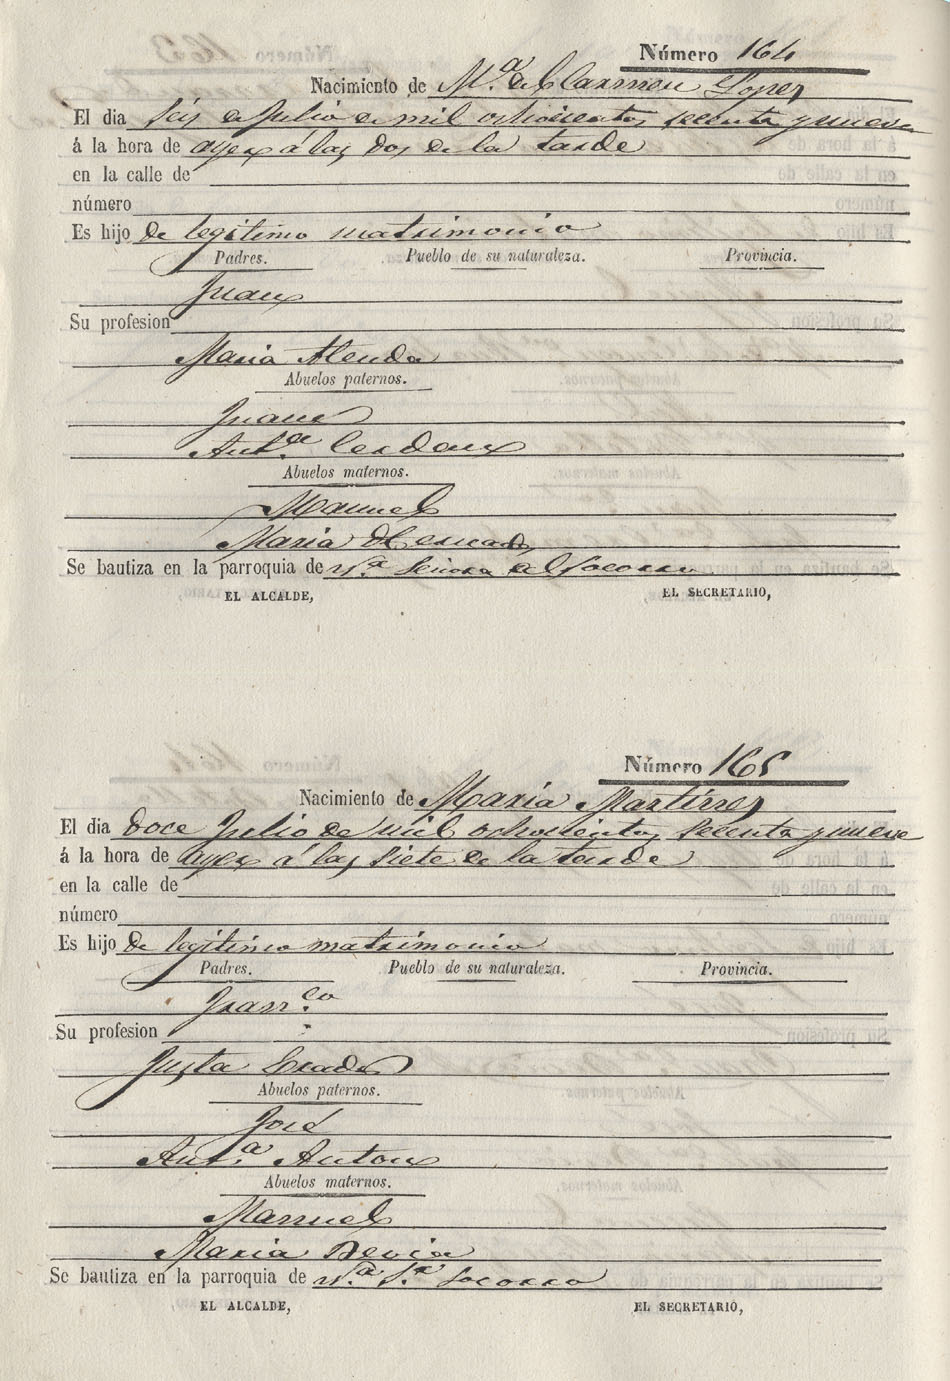 Número 164
Nacimiento de M.ª del Carmen Lopez
El dia seis de Julio de mil ochocientos sesenta y nueve
á la hora de ayer á las dos de la tarde
en la calle de
número
Es hijo de legitimo matrimonio
Padres. Pueblo de su naturaleza. Provincia.
Juan
Su profesion
Maria Alenda
Abuelos paternos.
Juan
Ant.ª Cerdan
Abuelos maternos.
Manuel
Maria
Se bautiza en la parroquia de N.ª Señora del Socorro
EL ALCALDE, EL SECRETARIO,
Número 165
Nacimiento de Maria Martinez
El dia doce Julio de mil ochocientos sesenta y nueve
á la hora de ayer á las siete de la tarde
en la calle de
número
Es hijo de legitimo matrimonio
Padres. Pueblo de su naturaleza. Provincia.
Fran.co
Su profesion
Justa Prades
Abuelos paternos.
José
Ant.ª Anton
Abuelos maternos.
Manuel
Maria
Se bautiza en la parroquia de N.ª S.ª Socorro
EL ALCALDE, EL SECRETARIO,